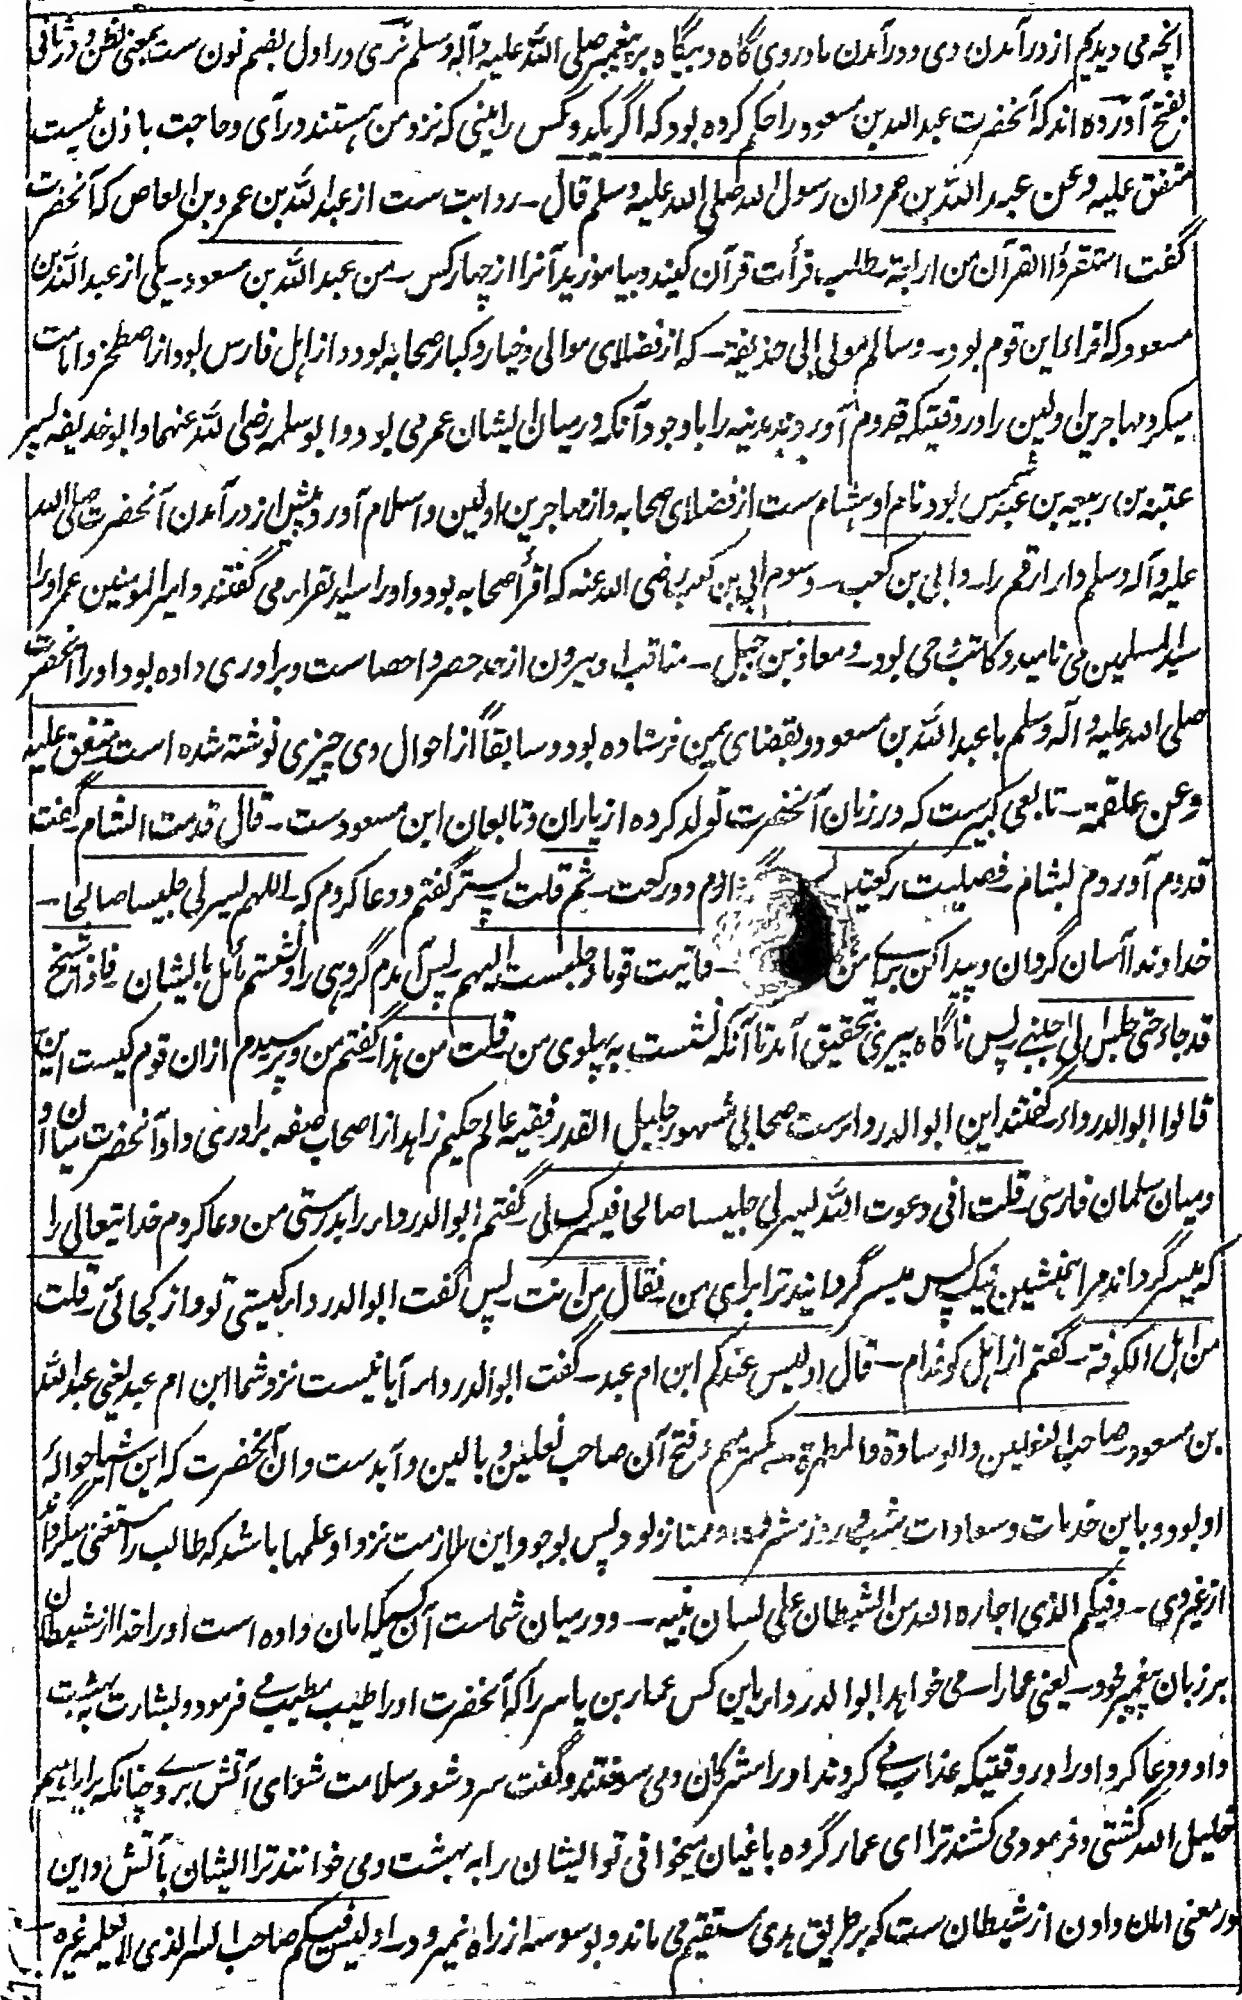 انچه می دیدیم از درآمدن وی و درآمدن مادر وی گاه و بیگاه بر پیغمبر صلی الله علیه وآله وسلم نری در اول بضم نون ست بمعنی نظن و در ثانی
بفتح آورده اند که آنحضرت عبدالله بن مسعود را حکم کرده بود که اگر یک دو کس را بینی که نزد من هستند درآی و حاجت باذن نیست
متفق علیه وعن عبد الله بن عمرو ان رسول الله صلی الله علیه وسلم قال ـ روایت ست از عبدالله بن عمرو بن العاص که آنحضرت
گفت استقرؤا القرآن من اربعة ـ طلب قرأت قرآن کنید و بیاموزید آنرا از چهار کس ـ من عبدالله بن مسعود ـ یکی از عبدالله بن
مسعود که اقرای این قوم بود ـ وسالم مولی ابی حذیفة ـ که از فضلای موالی و خیار و کبار صحابه بود و از اهل فارس بود از اصطخر و امامت
میکرد مهاجرین اولین را در وقتیکه قدوم آوردند بمدینه را با وجود آنکه در میان ایشان عمر می بود و ابوسلمه رضی الله عنهما و ابو حذیفه پسر
عتبه بن ربیعه بن عبد شمس بود نام او هشام ست از فضلای صحابه و از مهاجرین اولین و اسلام آورد پیش از درآمدن آنحضرت صلی الله
علیه وآله وسلم دار ارقم را ـ وابی بن کعب ـ و سوم ابی بن کعب رضی الله عنه که اقرأ صحابه بود و او را سید القراء می گفتند و امیر المومنین عمر او را
سید المسلمین می نامید و کاتب وحی بود ـ ومعاذ بن جبل ـ مناقب او بیرون از حد حصر و احصاست و برادری داده بود او را آنحضرت
صلی الله علیه وآله وسلم با عبدالله بن مسعود و بقضای یمن فرستاده بود و سابقاً از احوال وی چیزی نوشته شده است متفق علیه
وعن علقمة ـ تابعی کبیرست که در زمان آنحضرت تولد کرده از یاران و تابعان ابن مسعودست ـ قال قدمت الشام ـ گفت
قدوم آوردم بشام ـ فصلیت رکعتین دوم دو رکعت ـ ثم قلت پستر گفتم و دعا کردم که ـ اللهم یسر لی جلیسا صالحا ـ
خداوندا آسان گردان و پیدا کن برای من ـ فاتیت قوما وجلست الیهم ـ پس آمدم گروهی را و نشستم مائل بایشان فاذا شیخ
قد جاء حتی جلس الی جنبی ـ پس ناگاه پیری تحقیق آمد تا آنکه نشست به پهلوی من ـ قلت من هذا گفتم من و پرسیدم ازان قوم کیست این
قالوا ابو الدرداء ـ گفتند این ابو الدرداءست صحابی مشهور جلیل القدر فقیه عالم حکیم زاهد از اصحاب صفه برادری داد آنحضرت میان او
ومیان سلمان فارسی ـ قلت انی دعوت الله یسر لی جلیسا صالحا فیسرک لی ـ گفتم ابو الدرداء را بدرستی من دعا کردم خدایتعالی را
که میسر گرداند مرا همنشین نیک پس میسر گردانید ترا برای من ـ فقال من انت ـ پس گفت ابو الدرداء کیستی تو و از کجائی ـ قلت
من اهل الکوفة ـ گفتم از اهل کوفه ام ـ قال اولیس عندکم ابن ام عبد ـ گفت ابو الدرداء آیا نیست نزد شما ابن ام عبد یعنی عبدالله
بن مسعود ـ صاحب النعلین والوسادة والمطهرة بکسر میم و فتح آن صاحب نعلین و بالین و آبدست دان آنحضرت که این اشیا حواله
او بود و باین خدمات و سعادات شب و روز مشرف و ممتاز بود پس بوجود این ملازمت نزد او علمها باشد که طالب را مستغنی میگرداند
از غیر وی ـ وفیکم الذی اجاره الله من الشیطان علی لسان نبیه ـ و در میان شماست آن کسیکه امان داده است او را خدا از شیطان
بر زبان پیغمبر خود ـ یعنی عمارا ـ می خواهد ابو الدرداء باین کس عمار بن یاسر را که آنحضرت او را طیب مطیب می فرمود و بشارت بهشت
داد و دعا کرد او را در وقتیکه عذاب می کردند او را مشرکان و می سوختند و گفت سرد شو و سلامت شو ای آتش بر وی چنانکه بر ابراهیم
خلیل الله گشتی و فرمود می کشند ترا ای عمار گروه باغیان میخوانی تو ایشان را به بهشت و می خوانند ترا ایشان بآتش و این
در معنی امان دادن از شیطان ست که بر طریق هدی مستقیم می ماند و بوسوسه از راه نمیرود ـ اولیس فیکم صاحب السر الذی لا یعلمه غیره ـ